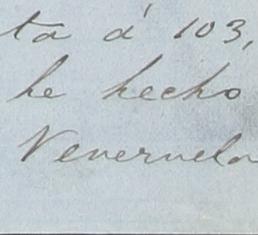 ta á 103,
he hecho
Venezuela